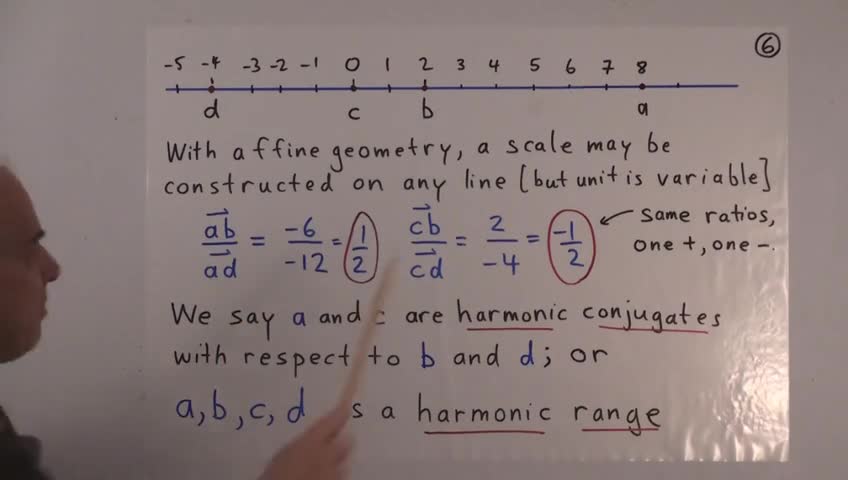 6
-5 -4 -3 -2 -1 0 1 2 3 4 5 6 7 8
d c b a
With affine geometry, a scale may be
constructed on any line [but unit is variable]
ab/ad = -6/-12 = 1/2 cb/cd = 2/-4 = -1/2 ← same ratios,
one +, one -.
We say a and c are harmonic conjugates
with respect to b and d; or
a, b, c, d s a harmonic range